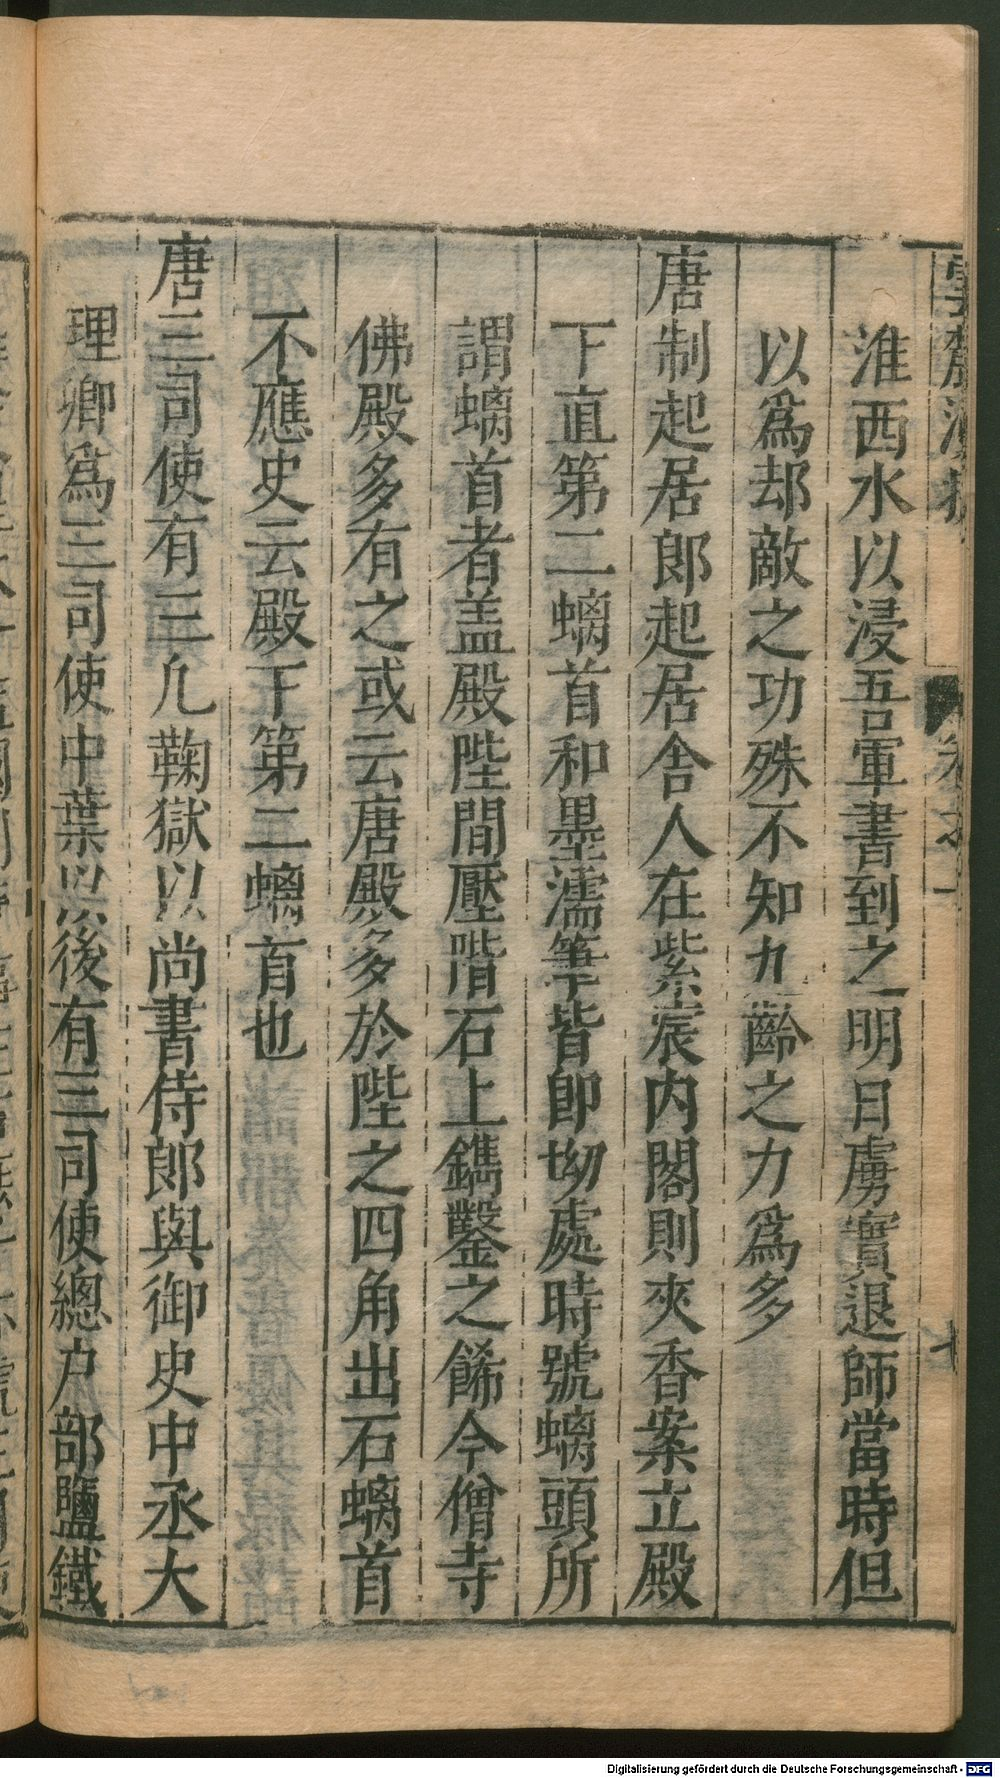 淮西水以浸吾軍書到之明日虜實退師當時但
以爲却敵之功殊不知九齡之力爲多
唐制起居郎起居舍人在紫宸内閣則夾香案立殿
下直第二螭首和墨濡筆皆即坳處時號螭頭所
謂螭首者盖殿陛間壓階石上鐫鑿之餙今僧寺
佛殿多有之或云唐殿多於陛之四角出石螭首
不應史云殿下第二螭首也
唐三司使有三凡鞠獄以尚書侍郎與御史中丞大
理卿爲三司使中葉以後有三司使總户部鹽鐵
Digitalisierung gefördert durch die Deutsche Forschungsgemeinschaft - DFG